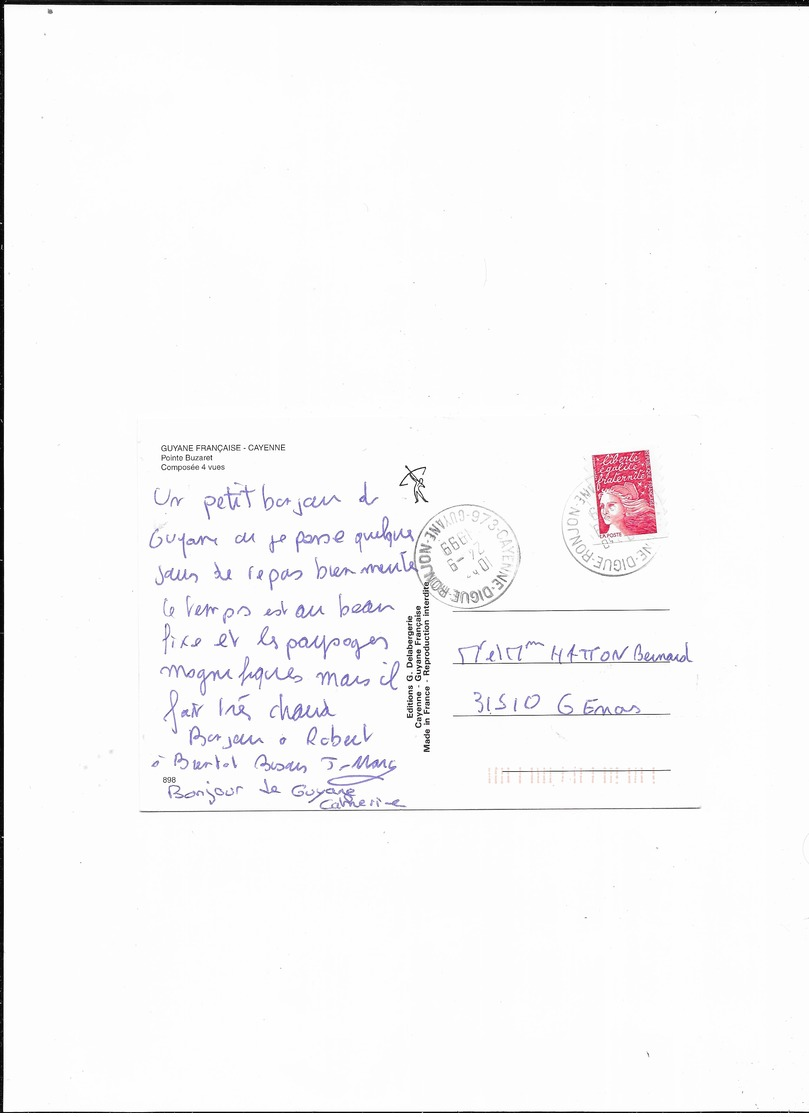 GUYANE FRANÇAISE - CAYENNE
Pointe Buzaret
Composée 4 vues
Un petit bonjour de
Guyane ou je passe quelque
jours de repas bien mérité
le temps est au beau
fixe et les paysages
magnifiques mais il
fait très chaud
Bonjour à Robert
à Bientot Bisous J-Marc
Bonjour de Guyane
Catherine
898
Editions G. Delabergerie
Cayenne - Guyane Française
Made in France - Reproduction interdite
973-CAYENNE-DIGUE-RONJON-GUYANE
24-9
1999
liberté
égalité
fraternité
LA POSTE
NE-DIGUE-RONJON
Mr et Mme HATTON Bernard
31510 GEnos